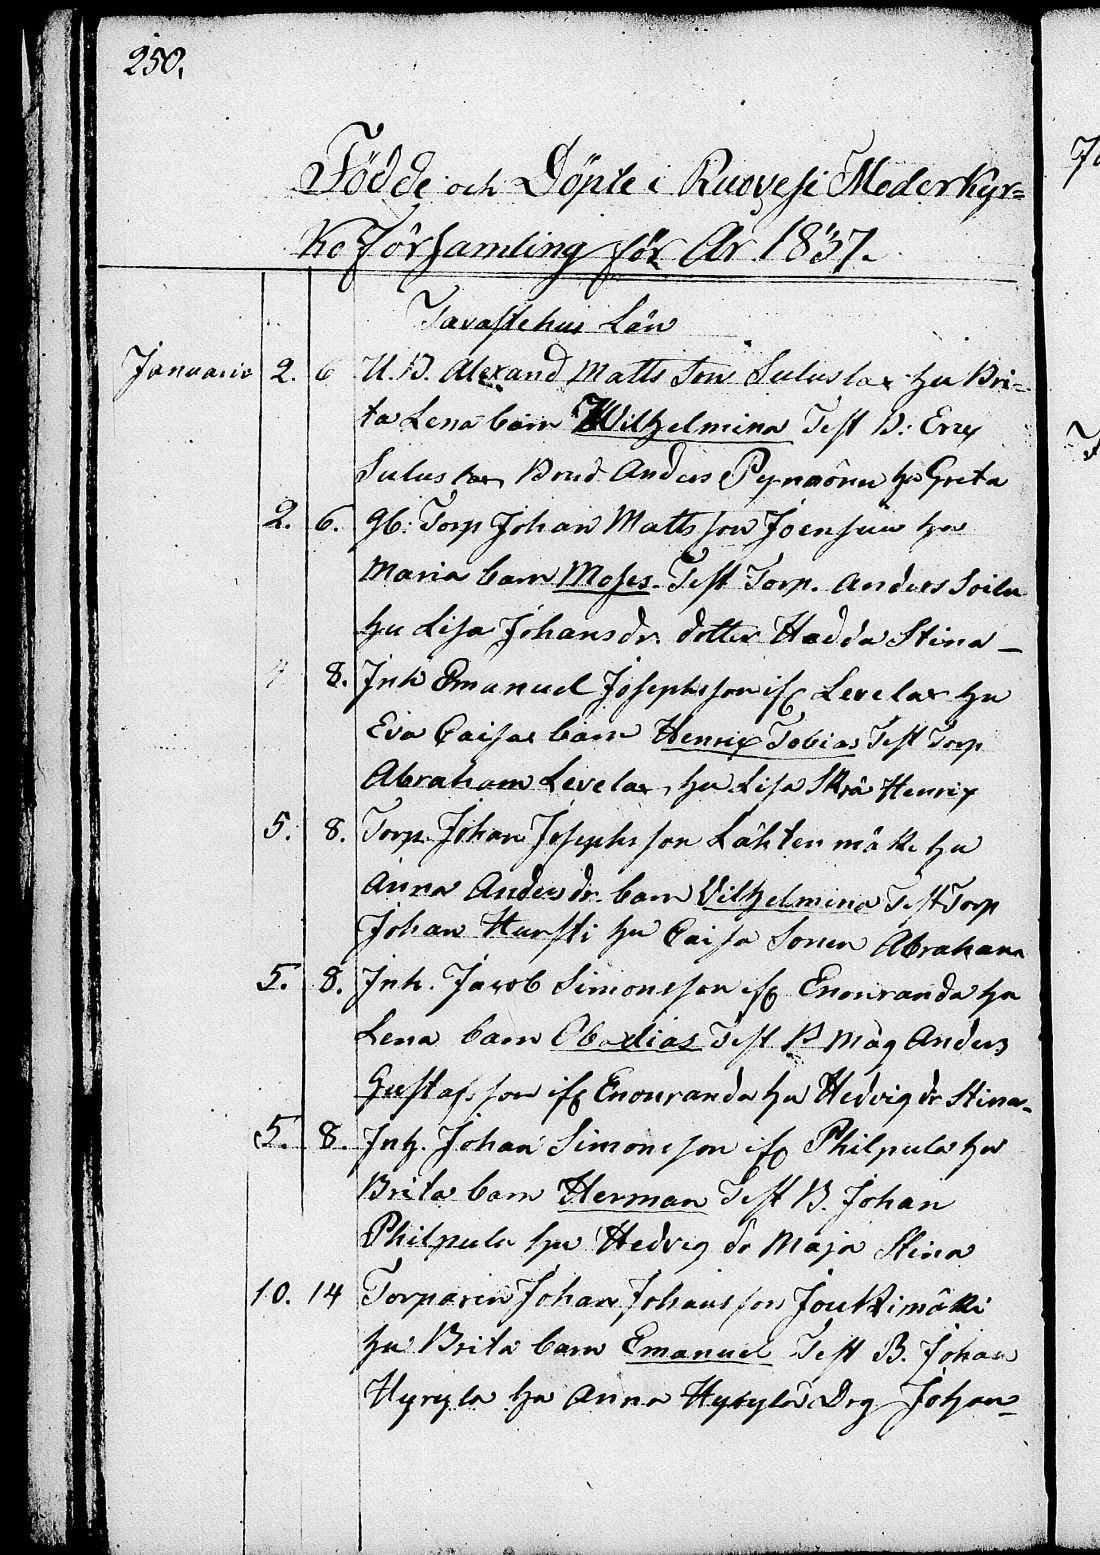 250.
Födde och Döpte i Ruovesi Moderkyr=
ko Församling för År 1837.
Tavastehus Län
Januario 2. 6 U.B. Alexand Matts Son Suluslax hu Bri=
ta Lena barn Wilhelmina Test B: Eric
Suluslax Brud Anders Pynnönu hu Greta
2. 6. gb: Torp Johan Matts son Joensuu hu
Maria barn Moses. Test Torp. Anders Soilu
hu Lisa Johansdr. dotter Hedda Stina
4 8. Inh Emanuel Josephsson if Levelax hu
Eva Caisa barn Henric Tobias Test Torp
Abraham Levelax, hu Lisa Skrä Henric
5. 8. Torp. Johan Josephs son Lähtenmäki hu
Anna Andersdr. barn Vilhelmina Test Torp
Johan Hursti hu Caisa Sonen Abraham
5. 8. Inh. Jacob Simonsson if Enonranda hu
Lena barn Obadias Test B Måg Anders
Gustafs son if Enonranda hu Hedvig dr Stina.
5. 8. Inh. Johan Simonsson if Philpula hu
Brita barn Herman Test B. Johan
Philpula hu Hedvig dr Maja Stina
10. 14 Torparen Johan Johans son Joukimäki
hu Brita barn Emanuel Test B. Johan
Hyryla hu Anna Hyrylä Drg Johan=